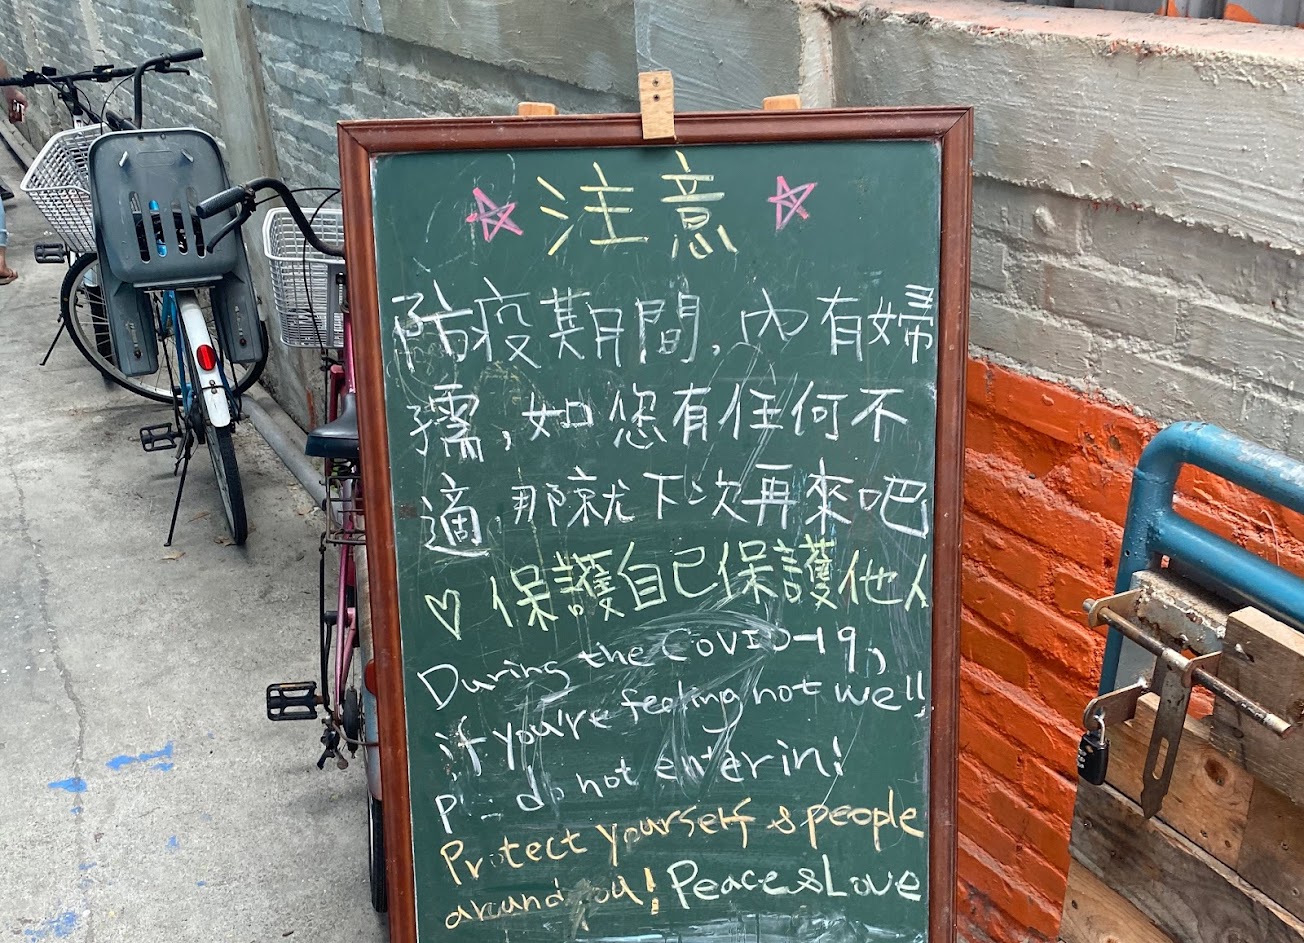 注意
防疫期間,內有婦
孺,如您有任何不
適 那就下次再來吧
♡保護自己保護他人
During the COVID-19,
if you're feeling not well,
do not enter in!
Protect yourself & people
around you! Peace & Love